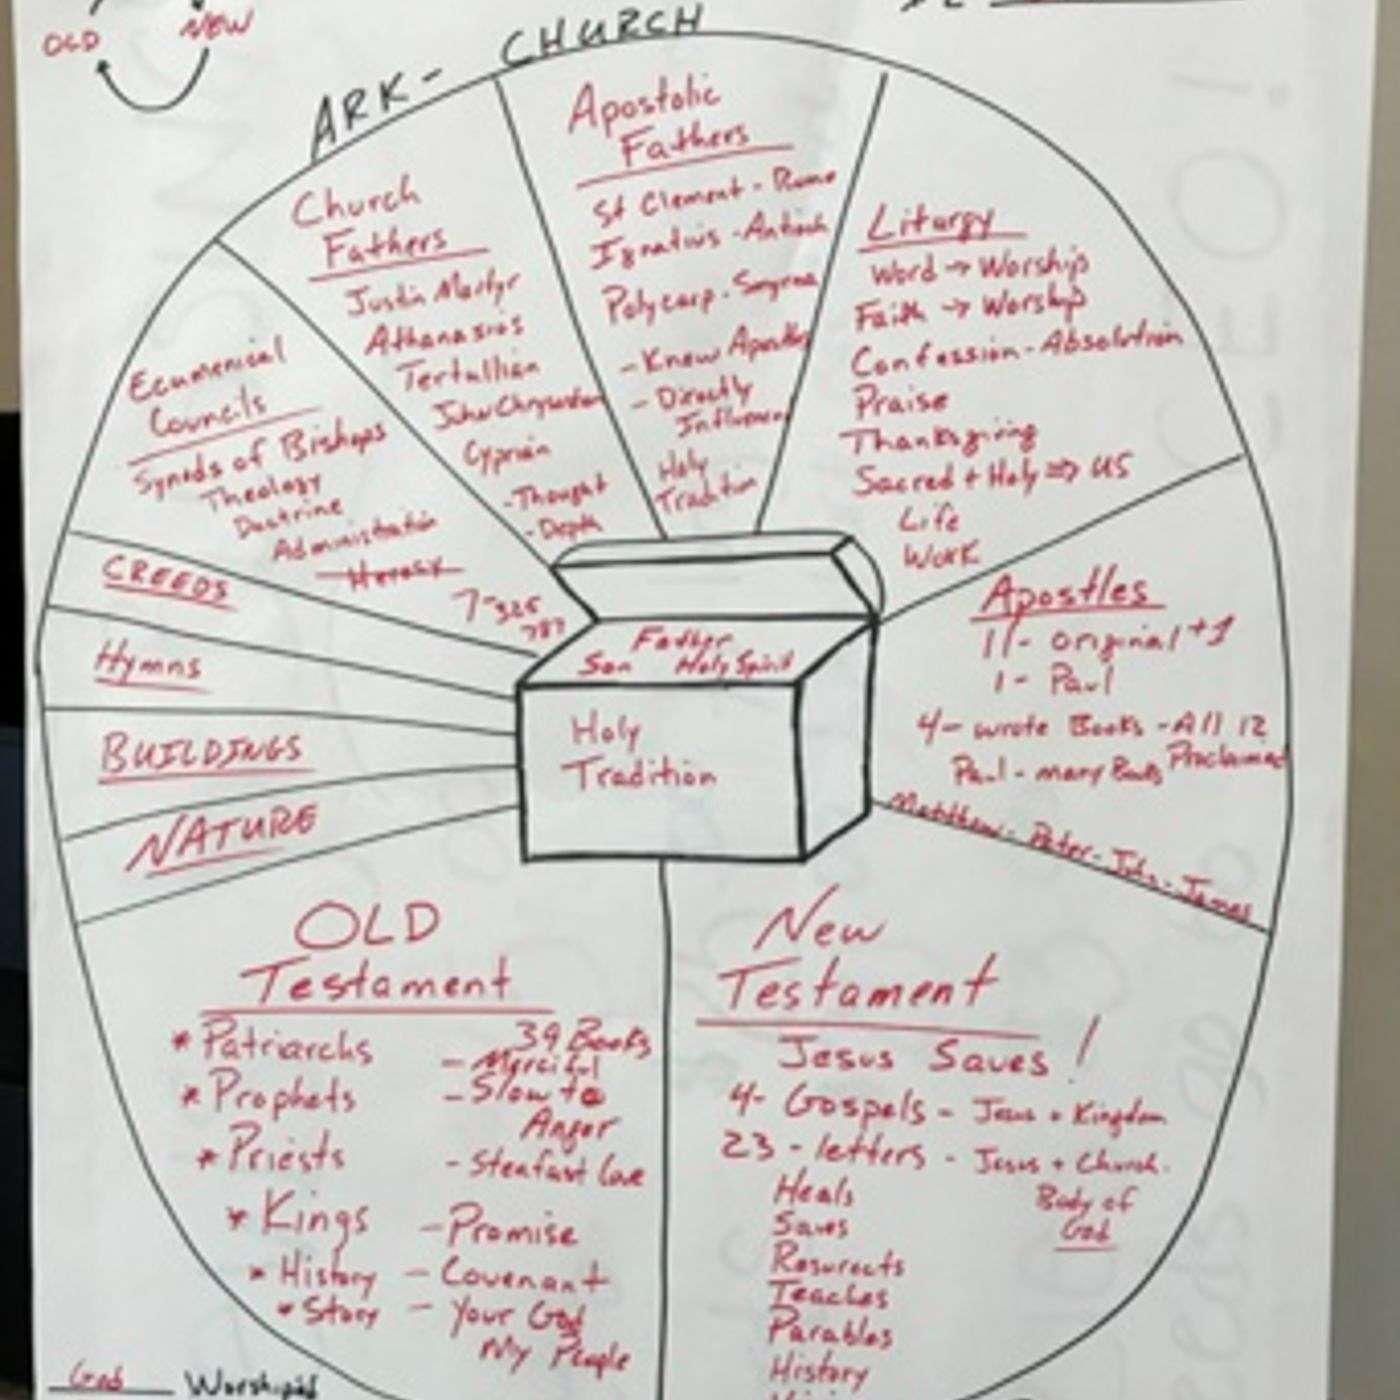 OLD
NEW
ARK - CHURCH
Apostolic
Fathers
St Clement - Rome
Ignatius - Antioch
Polycarp - Smyrna
- Knew Apostles
- Directly
Influenced
Holy
Tradition
Church
Fathers
Justin Martyr
Athanasius
Tertullian
John Chrysostom
Cyprian
- Thought
- Depth
Liturgy
Word → Worship
Faith → Worship
Confession - Absolution
Praise
Thanksgiving
Sacred + Holy ⇒ US
Life
Work
Ecumenical
Councils
Synods of Bishops
Theology
Doctrine
Administration
Heresy
7 - 325
787
CREEDS
Hymns
BUILDINGS
NATURE
Father
Son Holy Spirit
Holy
Tradition
Apostles
11 - original +1
1 - Paul
4 - wrote Books - All 12
Proclaimed
Paul - many Books
Matthew - Peter - John - James
OLD
Testament
* Patriarchs
* Prophets
* Priests
* Kings
* History
* Story
39 Books
- Merciful
- Slow to
Anger
- Steafast Love
- Promise
- Covenant
- Your God
My People
New
Testament
Jesus Saves!
4 - Gospels - Jesus + Kingdom
23 - letters - Jesus + Church.
Body of
God
Heals
Saves
Resurects
Teaches
Parables
History
God Worshiped